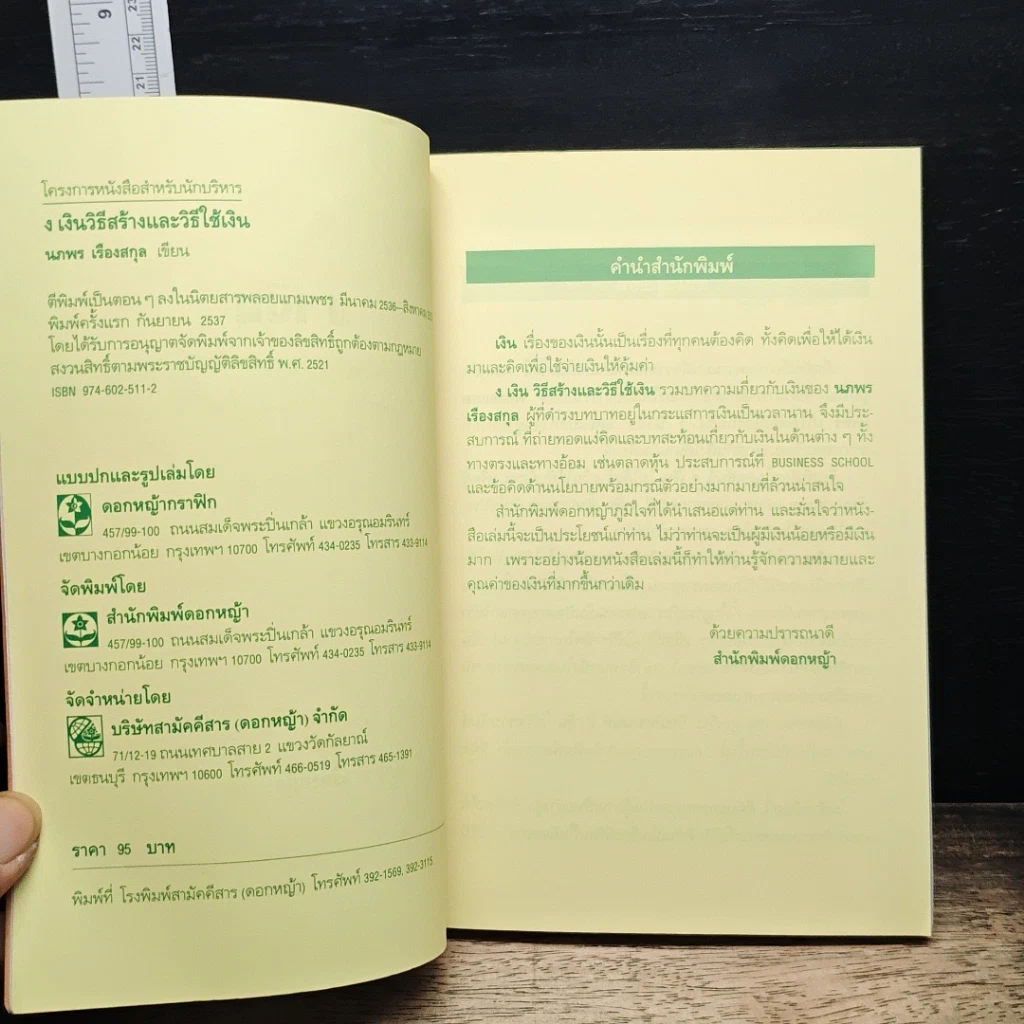 9
23
22
21
โครงการหนังสือสำหรับนักบริหาร
ง เงินวิธีสร้างและวิธีใช้เงิน
นภพร เรืองสกุล เขียน
ตีพิมพ์เป็นตอน ๆ ลงในนิตยสารพลอยแกมเพชร มีนาคม 2536–สิงหาคม
พิมพ์ครั้งแรก กันยายน 2537
โดยได้รับการอนุญาตจัดพิมพ์จากเจ้าของลิขสิทธิ์ถูกต้องตามกฎหมาย
สงวนสิทธิ์ตามพระราชบัญญัติลิขสิทธิ์ พ.ศ. 2521
ISBN 974-602-511-2
แบบปกและรูปเล่มโดย
ดอกหญ้ากราฟิก
457/99-100 ถนนสมเด็จพระปิ่นเกล้า แขวงอรุณอมรินทร์
เขตบางกอกน้อย กรุงเทพฯ 10700 โทรศัพท์ 434-0235 โทรสาร 433-9114
จัดพิมพ์โดย
สำนักพิมพ์ดอกหญ้า
457/99-100 ถนนสมเด็จพระปิ่นเกล้า แขวงอรุณอมรินทร์
เขตบางกอกน้อย กรุงเทพฯ 10700 โทรศัพท์ 434-0235 โทรสาร 433-9114
จัดจำหน่ายโดย
บริษัทสามัคคีสาร (ดอกหญ้า) จำกัด
71/12-19 ถนนเทศบาลสาย 2 แขวงวัดกัลยาณ์
เขตธนบุรี กรุงเทพฯ 10600 โทรศัพท์ 466-0519 โทรสาร 465-1391
ราคา 95 บาท
พิมพ์ที่ โรงพิมพ์สามัคคีสาร (ดอกหญ้า) โทรศัพท์ 392-1569, 392-3115
คำนำสำนักพิมพ์
เงิน เรื่องของเงินนั้นเป็นเรื่องที่ทุกคนต้องคิด ทั้งคิดเพื่อให้ได้เงิน
มาและคิดเพื่อใช้จ่ายเงินให้คุ้มค่า
ง เงิน วิธีสร้างและวิธีใช้เงิน รวมบทความเกี่ยวกับเงินของ นภพร
เรืองสกุล ผู้ที่ดำรงบทบาทอยู่ในกระแสการเงินเป็นเวลานาน จึงมีประ-
สบการณ์ ที่ถ่ายทอดแง่คิดและบทสะท้อนเกี่ยวกับเงินในด้านต่าง ๆ ทั้ง
ทางตรงและทางอ้อม เช่นตลาดหุ้น ประสบการณ์ที่ BUSINESS SCHOOL
และข้อคิดด้านนโยบายพร้อมกรณีตัวอย่างมากมายที่ล้วนน่าสนใจ
สำนักพิมพ์ดอกหญ้าภูมิใจที่ได้นำเสนอแด่ท่าน และมั่นใจว่าหนัง-
สือเล่มนี้จะเป็นประโยชน์แก่ท่าน ไม่ว่าท่านจะเป็นผู้มีเงินน้อยหรือมีเงิน
มาก เพราะอย่างน้อยหนังสือเล่มนี้ก็ทำให้ท่านรู้จักความหมายและ
คุณค่าของเงินที่มากขึ้นกว่าเดิม
ด้วยความปรารถนาดี
สำนักพิมพ์ดอกหญ้า